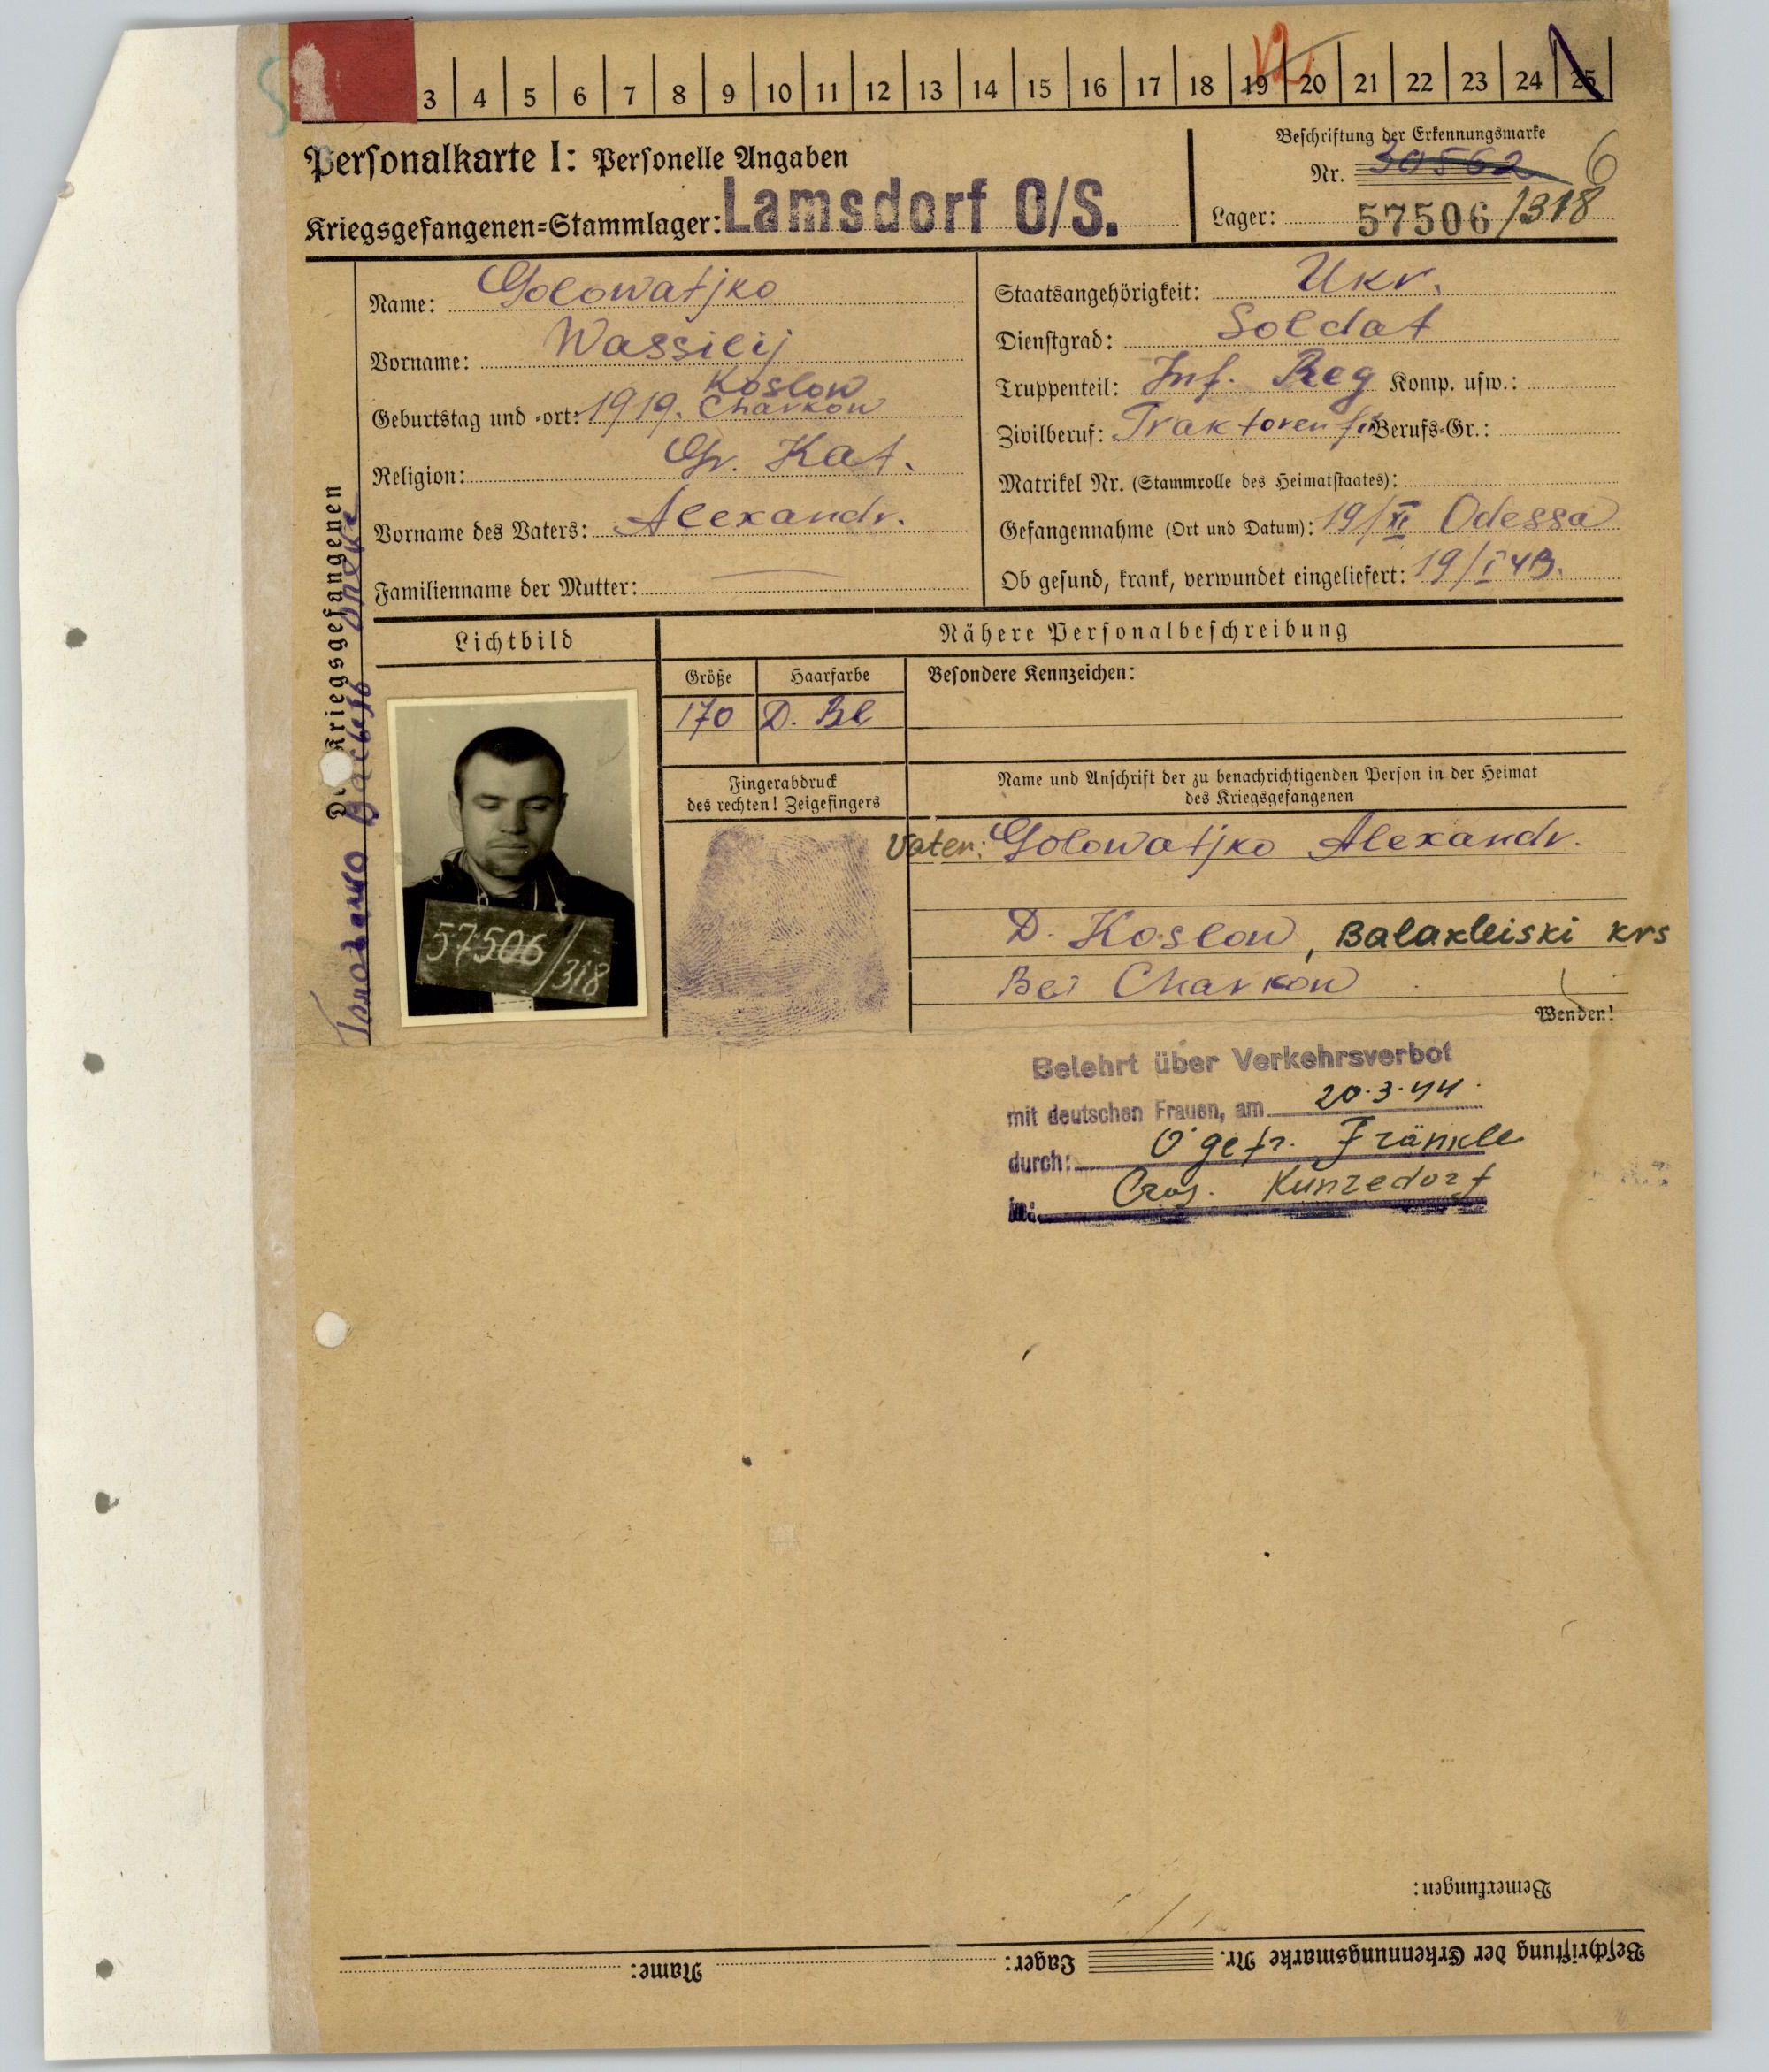 3 4 5 6 7 8 9 10 11 12 13 14 15 16 17 18 19 20 21 22 23 24 25
12
Personalkarte I: Personelle Angaben
Kriegsgefangenen=Stammlager: Lamsdorf O/S.
Beschriftung der Erkennungsmarke
Nr. 30562
6
Lager: 57506/318
Name: Golowatjko
Vorname: Wassilij
Koslow
Geburtstag und =ort: 1919. Charkow
Religion: Gr. Kat.
Vorname des Vaters: Alexandr.
Familienname der Mutter:
Staatsangehörigkeit: Ukr.
Dienstgrad: Soldat
Truppenteil: Inf. Reg Komp. usw.:
Zivilberuf: Traktorenf Berufs=Gr.:
Matrikel Nr. (Stammrolle des Heimatstaates):
Gefangennahme (Ort und Datum): 19/XI Odessa
Ob gesund, krank, verwundet eingeliefert: 19/I 43.
Kriegsgefangenen
Lichtbild
57506/318
Nähere Personalbeschreibung
Größe
Haarfarbe
Besondere Kennzeichen:
170
D. Bl
Fingerabdruck
des rechten! Zeigefingers
Name und Anschrift der zu benachrichtigenden Person in der Heimat
des Kriegsgefangenen
Vater: Golowatjko Alexandr.
D. Koslow, Balakleiski krs
Bei Charkow
Wenden!
Belehrt über Verkehrsverbot
mit deutschen Frauen, am 20.3.44.
durch: O'gefr. Fränkle
in: Kunzedorf
Bemerkungen:
Beschriftung der Erkennungsmarke Nr. Lager: Name: